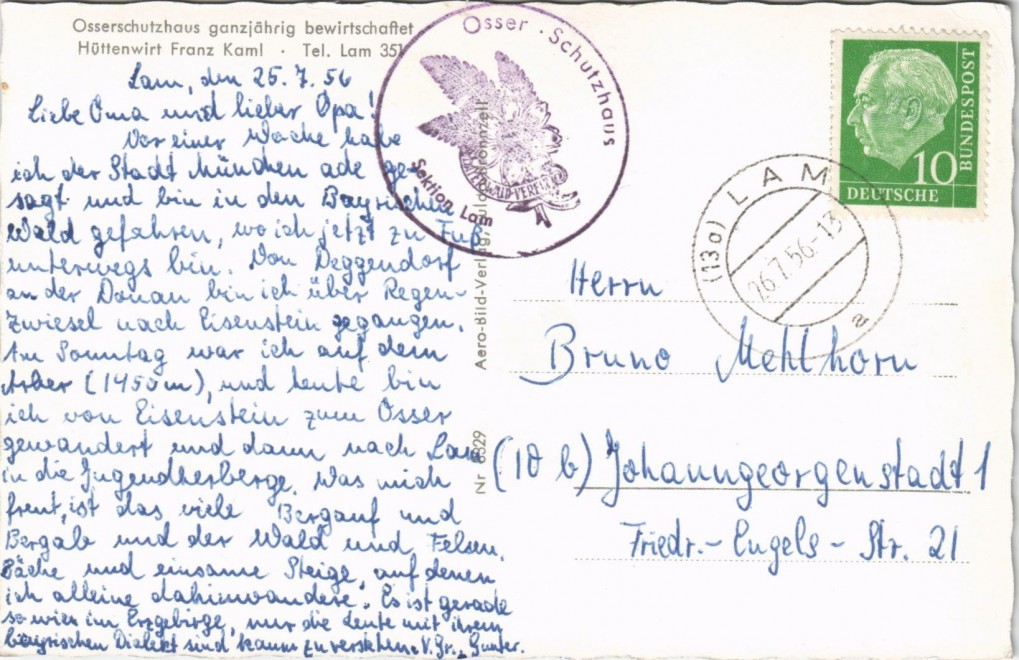 Osserschutzhaus ganzjährig bewirtschaftet
Hüttenwirt Franz Kaml · Tel. Lam 351
Lam, den 25.7.56
Liebe Oma und lieber Opa!
Vor einer Woche habe
ich der Stadt München ade ge-
sagt und bin in den Bayrischen
Wald gefahren, wo ich jetzt zu Fuß
unterwegs bin. Von Deggendorf
an der Donau bin ich über Regen-
Zwiesel nach Eisenstein gegangen.
Am Sonntag war ich auf dem
Arber (1450m), und heute bin
ich von Eisenstein zum Osser
gewandert und dann nach Lam
in die Jugendherberge. Was mich
freut, ist das viele Bergauf und
Bergab und der Wald und Felsen,
Bäche und einsame Steige, auf denen
ich alleine dahinwandere. Es ist gerade
so wie im Erzgebirge, nur die Leute mit ihrem
bayrischen Dialekt sind kaum zu verstehen. V. Gr. Gunter.
Osser · Schutzhaus
Sektion Lam
WALD-VEREIN
Aero-Bild-Verlag, Fulda-Bronnzell
Nr 6829
DEUTSCHE
BUNDESPOST
10
(13a) LAM
26.7.56-13
a
Herrn
Bruno Mehlhorn
(10 b) Johanngeorgenstadt 1
Friedr.-Engels-Str. 21